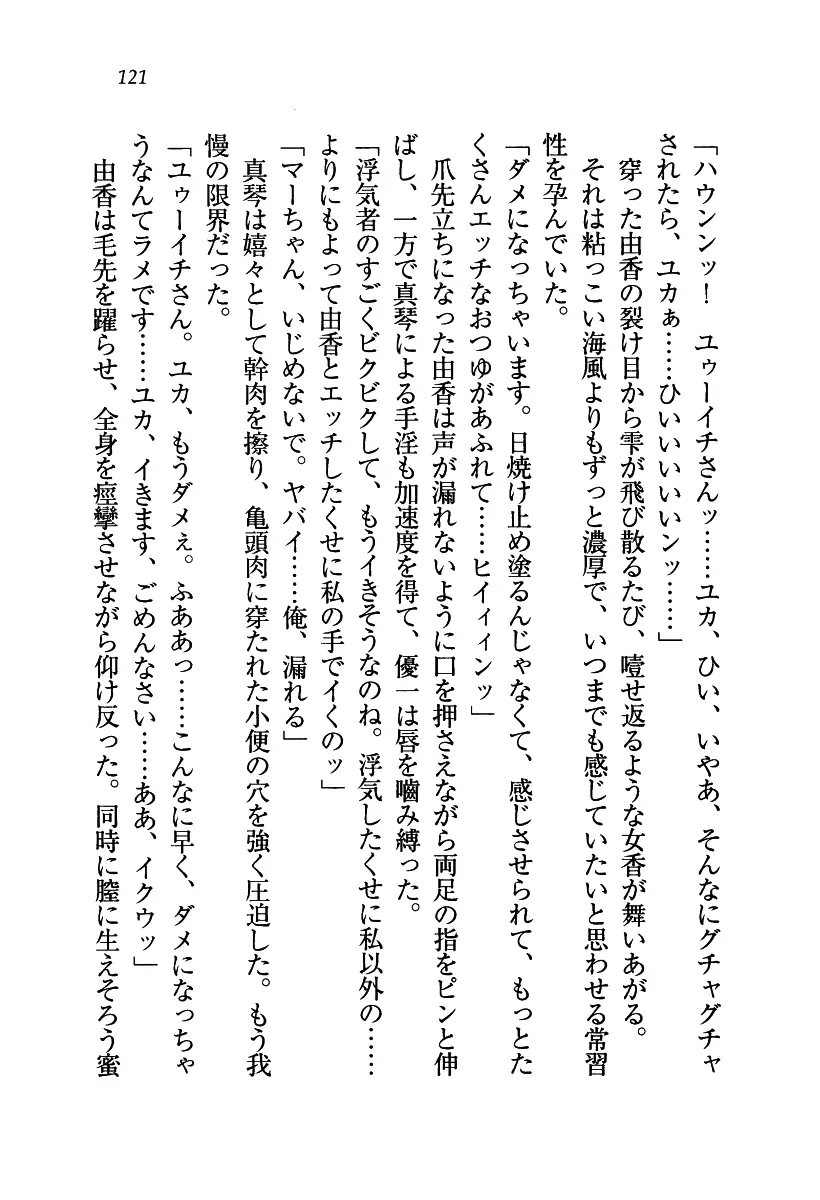 121
「ハウンンッ！　ユゥーイチさんッ……ユカ、ひい、いやあ、そんなにグチャグチャ
されたら、ユカぁ……ひいいいいいンッ……」
穿った由香の裂け目から雫が飛び散るたび、噎せ返るような女香が舞いあがる。
それは粘っこい海風よりもずっと濃厚で、いつまでも感じていたいと思わせる常習
性を孕んでいた。
「ダメになっちゃいます。日焼け止め塗るんじゃなくて、感じさせられて、もっとた
くさんエッチなおつゆがあふれて……ヒイィィンッ」
爪先立ちになった由香は声が漏れないように口を押さえながら両足の指をピンと伸
ばし、一方で真琴による手淫も加速度を得て、優一は唇を嚙み縛った。
「浮気者のすごくビクビクして、もうイきそうなのね。浮気したくせに私以外の……
よりにもよって由香とエッチしたくせに私の手でイくのッ」
「マーちゃん、いじめないで。ヤバイ……俺、漏れる」
真琴は嬉々として幹肉を擦り、亀頭肉に穿たれた小便の穴を強く圧迫した。もう我
慢の限界だった。
「ユゥーイチさん。ユカ、もうダメぇ。ふああっ……こんなに早く、ダメになっちゃ
うなんてラメです……ユカ、イきます、ごめんなさい……ああ、イクウッ」
由香は毛先を躍らせ、全身を痙攣させながら仰け反った。同時に膣に生えそろう蜜